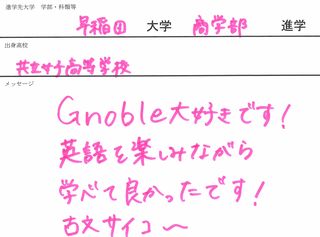 進学先大学 学部・科類等
早稲田 大学 商学部 進学
出身高校
共立女子高等学校
メッセージ
Gnoble大好きです!
英語を楽しみながら
学べて良かったです!
古文サイコ〜